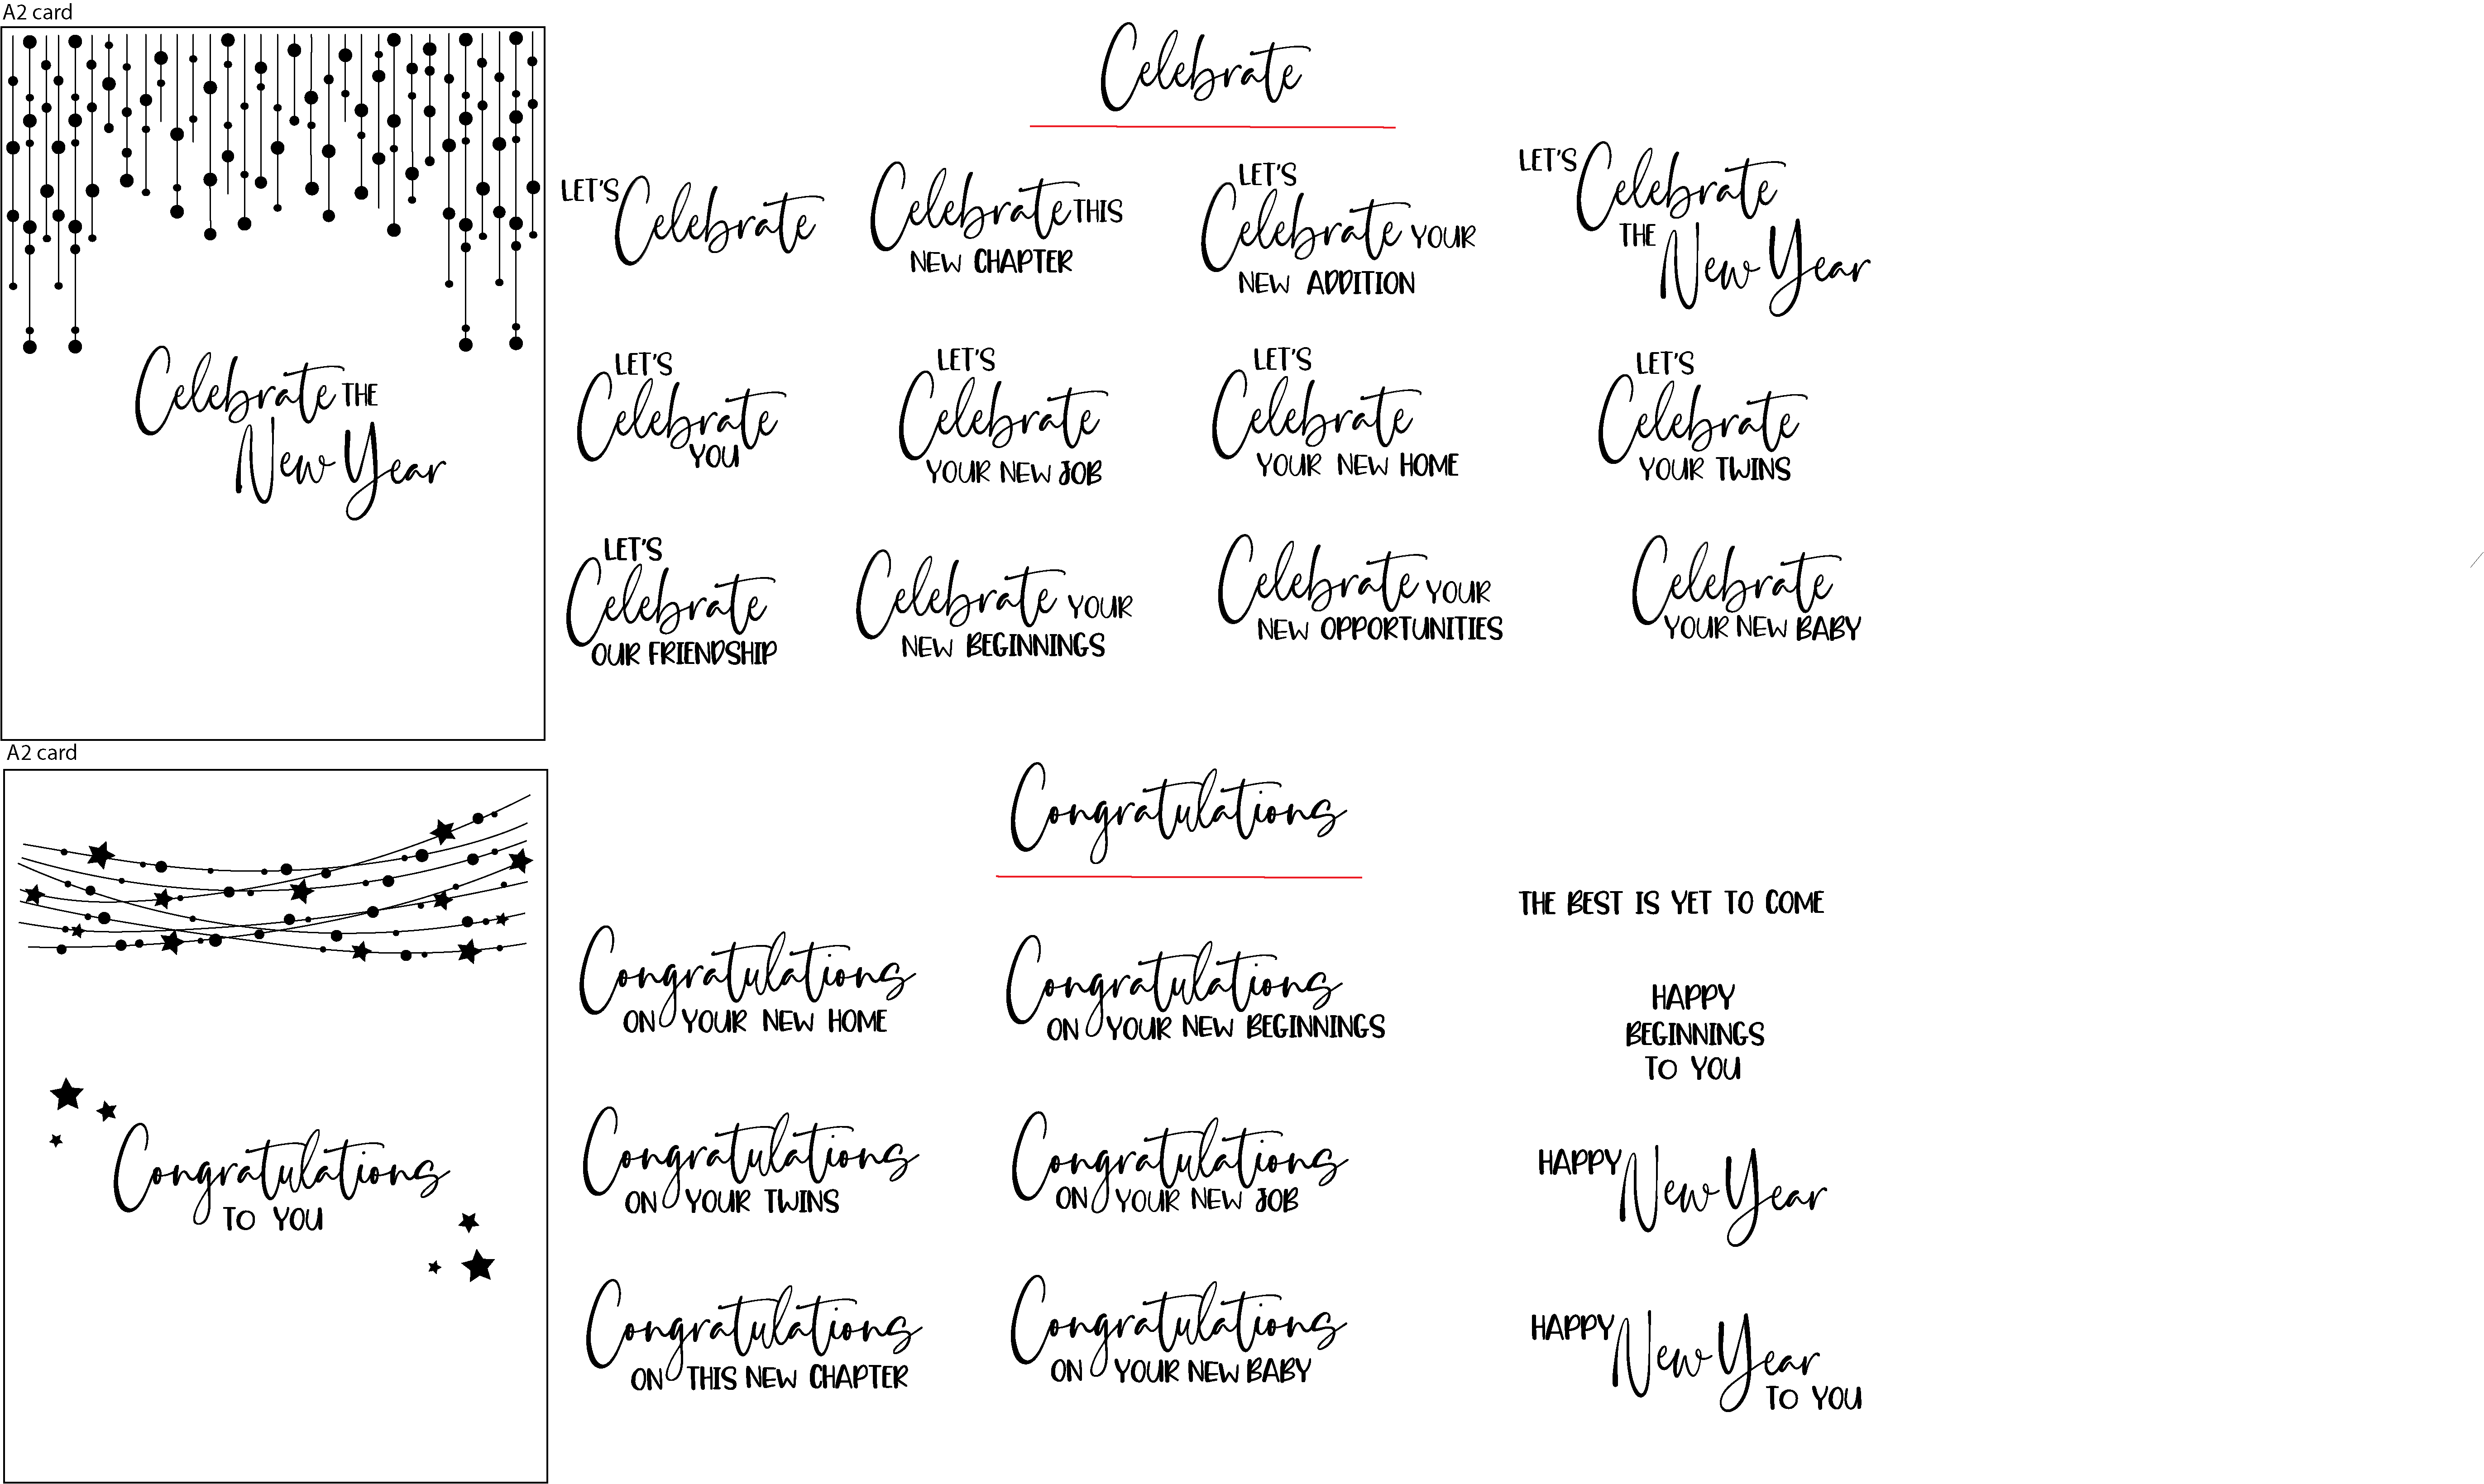 A2 card
Celebrate THE
New Year
Celebrate
LET'S Celebrate
Celebrate THIS
NEW CHAPTER
LET'S
Celebrate YOUR
NEW ADDITION
LET'S Celebrate
THE New Year
LET'S
Celebrate
YOU
LET'S
Celebrate
YOUR NEW JOB
LET'S
Celebrate
YOUR NEW HOME
LET'S
Celebrate
YOUR TWINS
LET'S
Celebrate
OUR FRIENDSHIP
Celebrate YOUR
NEW BEGINNINGS
Celebrate YOUR
NEW OPPORTUNITIES
Celebrate
YOUR NEW BABY
A2 card
Congratulations
TO YOU
Congratulations
Congratulations
ON YOUR NEW HOME
Congratulations
ON YOUR NEW BEGINNINGS
Congratulations
ON YOUR TWINS
Congratulations
ON YOUR NEW JOB
Congratulations
ON THIS NEW CHAPTER
Congratulations
ON YOUR NEW BABY
THE BEST IS YET TO COME
HAPPY
BEGINNINGS
TO YOU
HAPPY New Year
HAPPY New Year
TO YOU